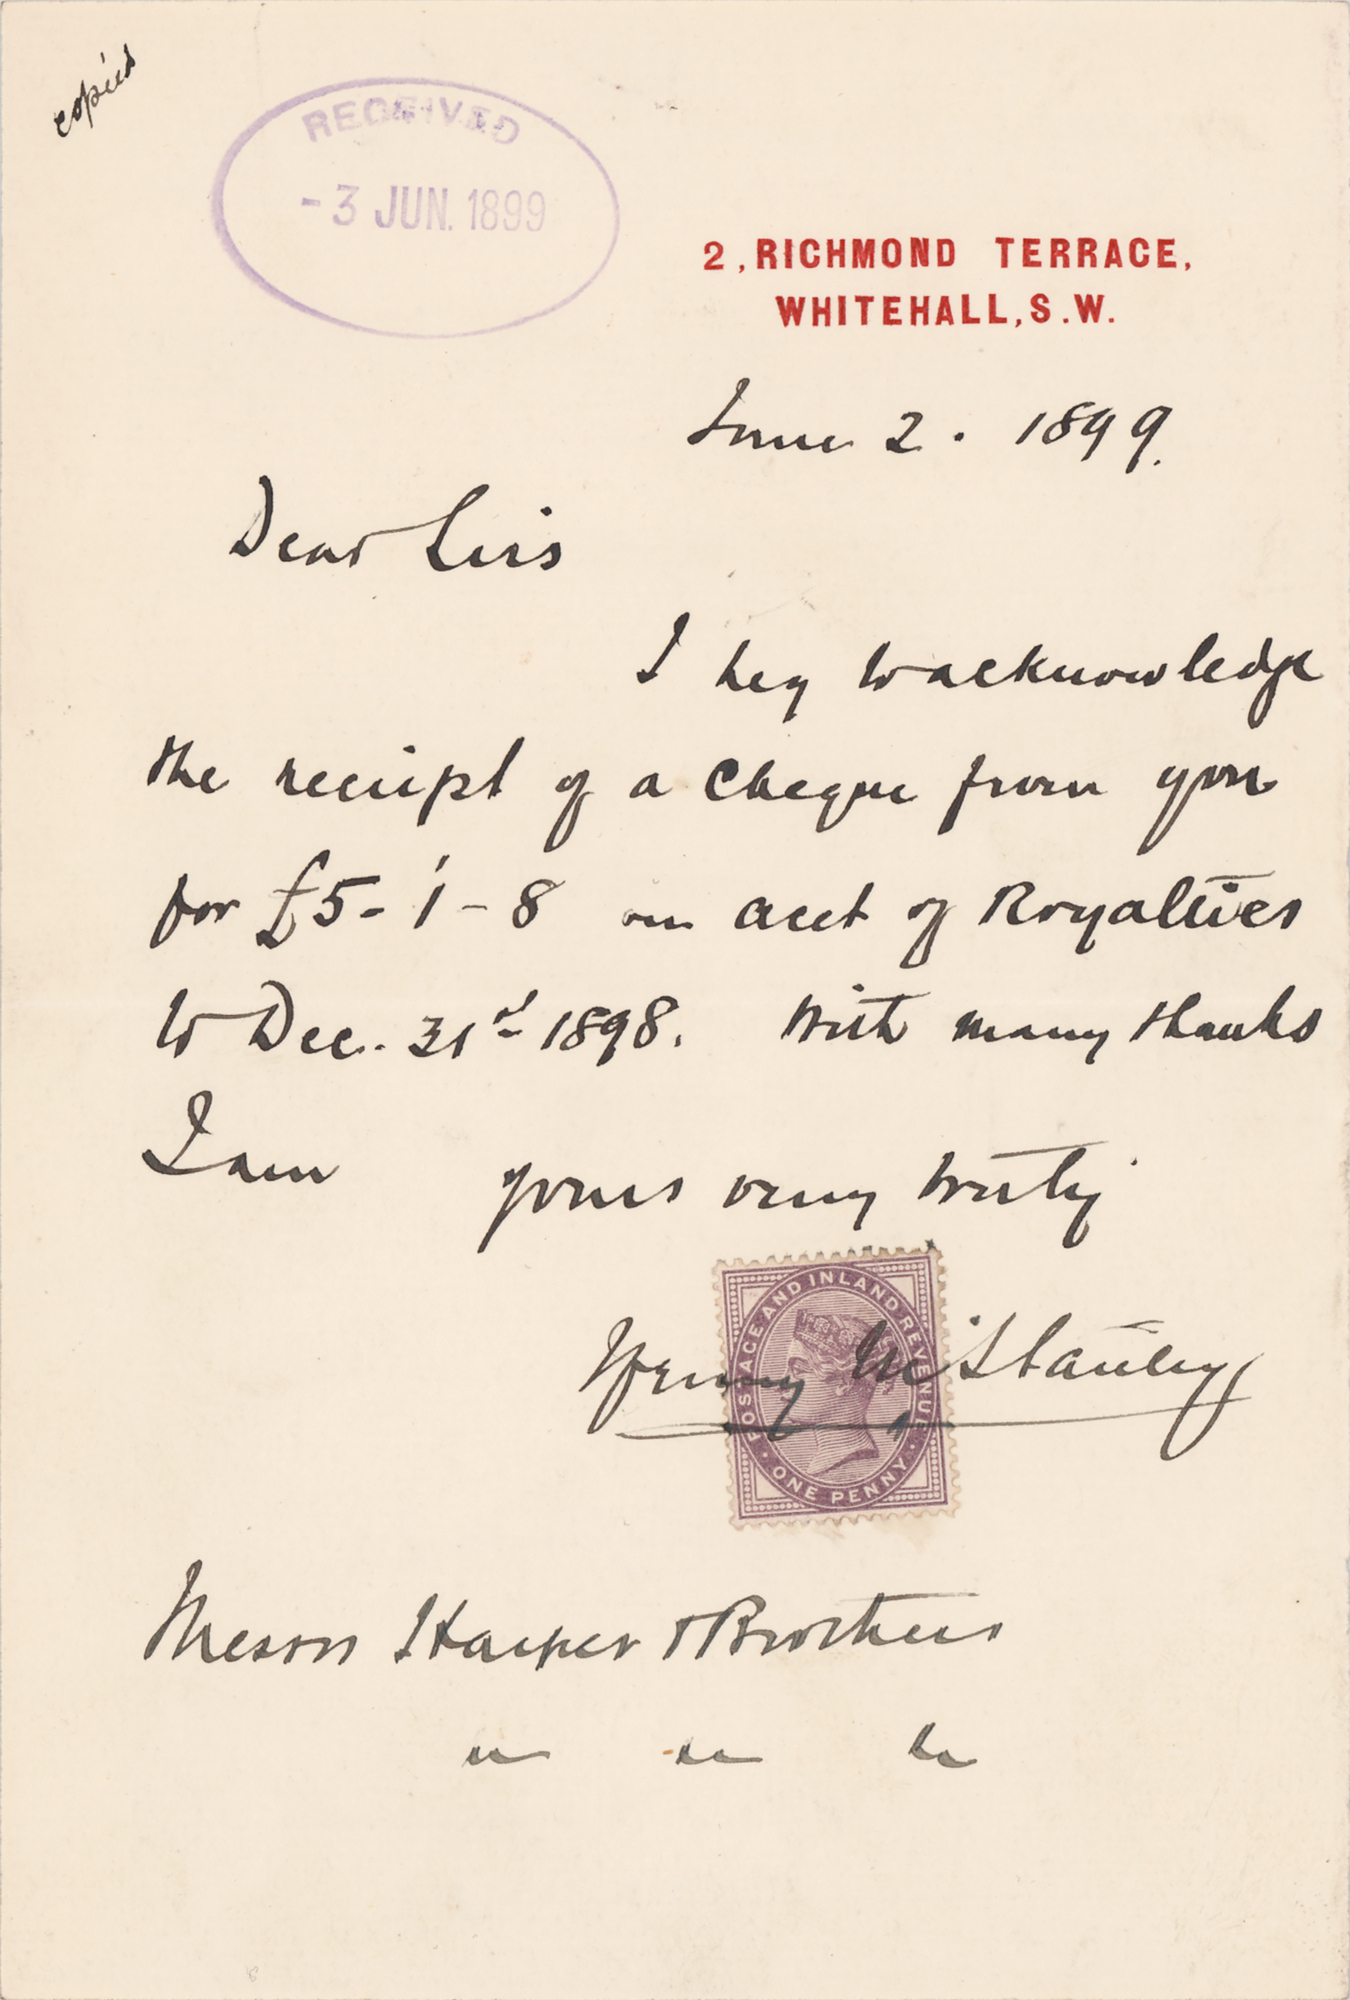 copied
RECEIVED
-3 JUN. 1899
2, RICHMOND TERRACE,
WHITEHALL, S.W.
June 2. 1899.
Dear Sirs
I beg to acknowledge
the receipt of a cheque from you
for £5-1-8 on acct of Royalties
to Dec. 31st 1898. With many thanks
I am yours very truly
POSTAGE AND INLAND REVENUE
Henry M Stanley
ONE PENNY
Messrs Harper & Brothers